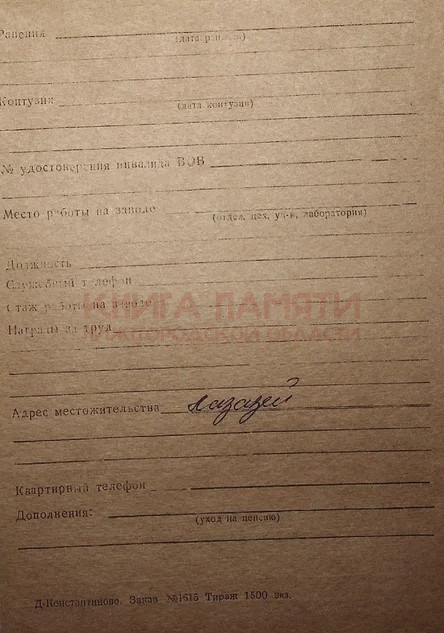 Ранения
(дата ранения)
Контузия
(дата контузии)
№ удостоверения инвалида ВОВ
Место работы на заводе
(отдел, цех, уч-к, лаборатория)
Должность
Служебный телефон
Стаж работы на заводе
КНИГА ПАМЯТИ
Награды за труд
НИЖЕГОРОДСКОЙ ОБЛАСТИ
Адрес местожительства
Квартирный телефон
Дополнения:
(уход на пенсию)
Д-Константиново. Заказ №1615 Тираж 1500 экз.